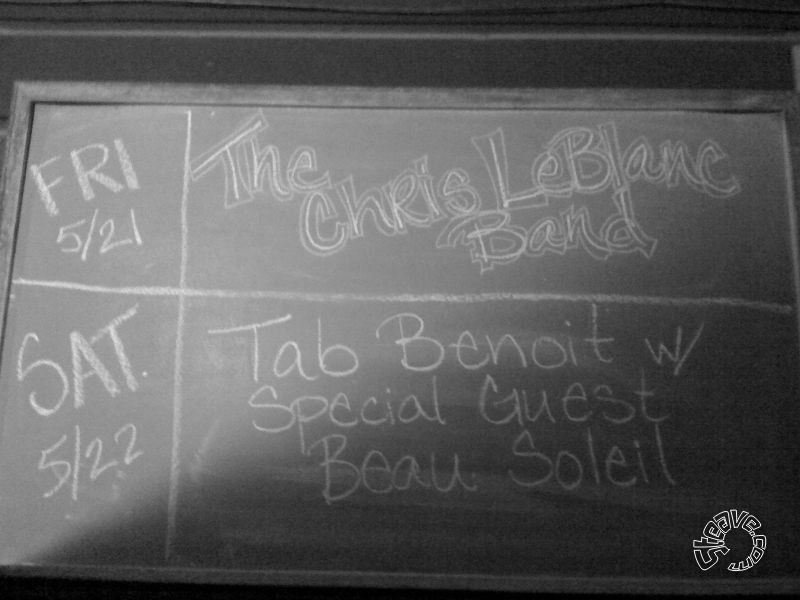 FRI
5/21
The
Chris LeBlanc
Band
SAT.
5/22
Tab Benoit w/
Special Guest
Beau Soleil
Steave.com